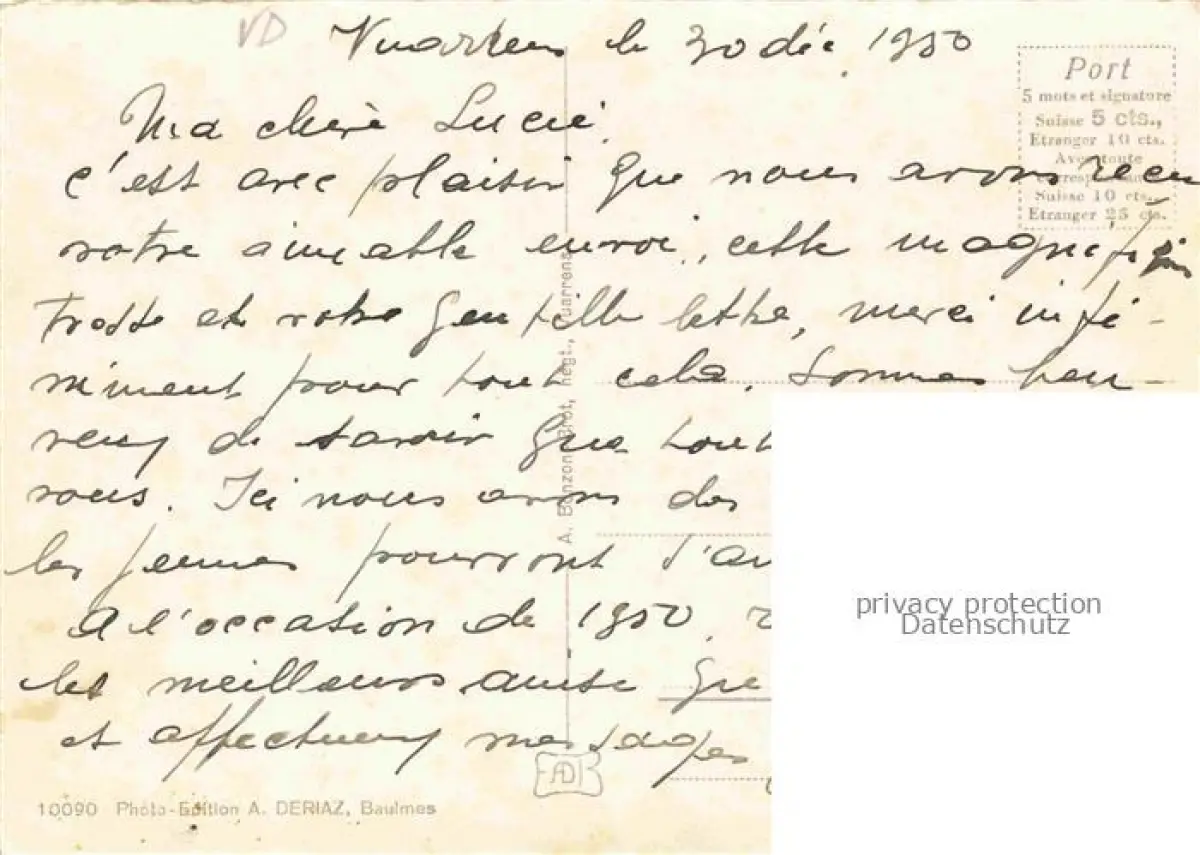 VD
Vuarrens le 30 déc. 1950
Port
5 mots et signature
Suisse 5 cts.,
Etranger 10 cts.
Avec toute
Suisse 10 cts.
Etranger 25 cts.
Ma chère Lucie,
c'est avec plaisir que nous avons reçu
votre aimable envoi, cette magnifique
et votre gentille lettre, merci infi-
niment pour tout cela. Sommes heu-
reux de savoir que tout
vous. Ici nous avons des
les jeunes pourront s'a
A l'occasion de 1950
les meilleurs que
et affectueux messages
A. Bonzon-Brot, négt., Vuarrens
privacy protection
Datenschutz
AD
10090 Photo-Edition A. DERIAZ, Baulmes